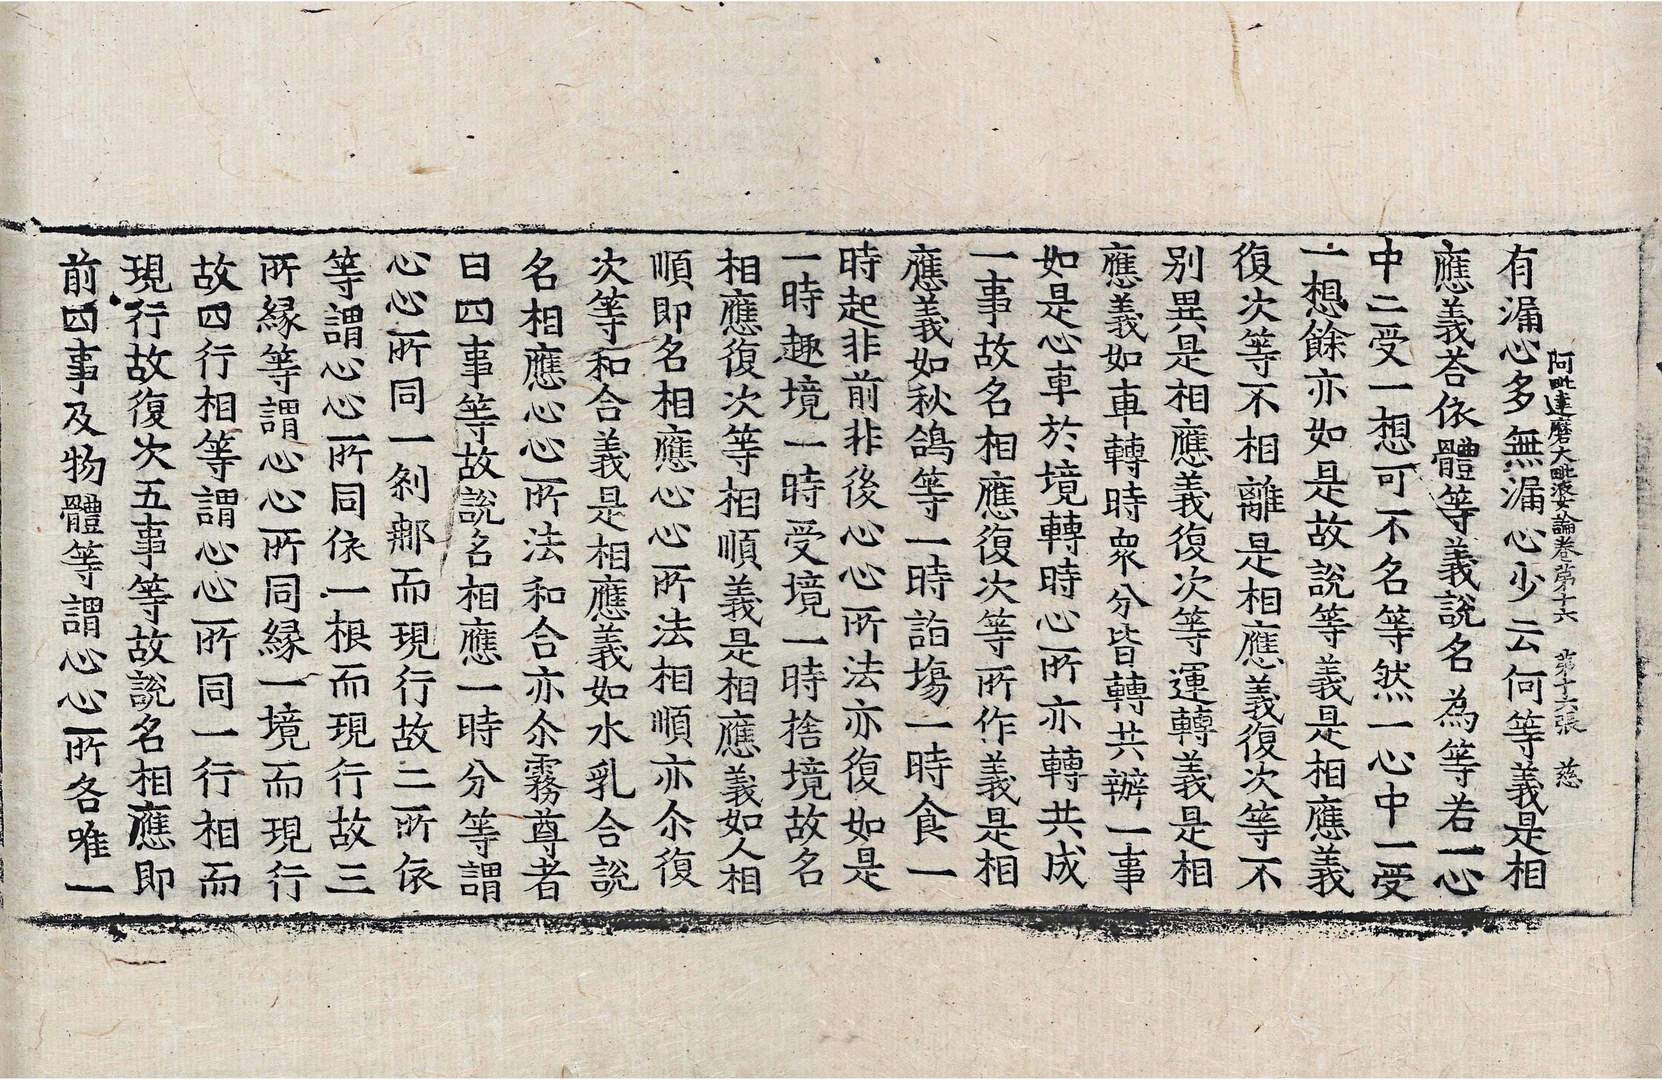 阿毗達磨大毗婆娑論卷第十六　第十六張　慈
有漏心多無漏心少云何等義是相
應義荅依體等義說名為等若一心
中二受一想可不名等然一心中一受
一想餘亦如是故說等義是相應義
復次等不相離是相應義復次等不
別異是相應義復次等運轉義是相
應義如車轉時衆分皆轉共辦一事
如是心車於境轉時心所亦轉共成
一事故名相應復次等所作義是相
應義如秋鴿等一時詣場一時食一
時起非前非後心心所法亦復如是
一時趣境一時受境一時捨境故名
相應復次等相順義是相應義如人相
順即名相應心心所法相順亦尒復
次等和合義是相應義如水乳合說
名相應心心所法和合亦尒霧尊者
曰四事等故說名相應一時分等謂
心心所同一剎那而現行故二所依
等謂心心所同依一根而現行故三
所緣等謂心心所同緣一境而現行
故四行相等謂心心所同一行相而
現行故復次五事等故說名相應即
前四事及物體等謂心心所各唯一